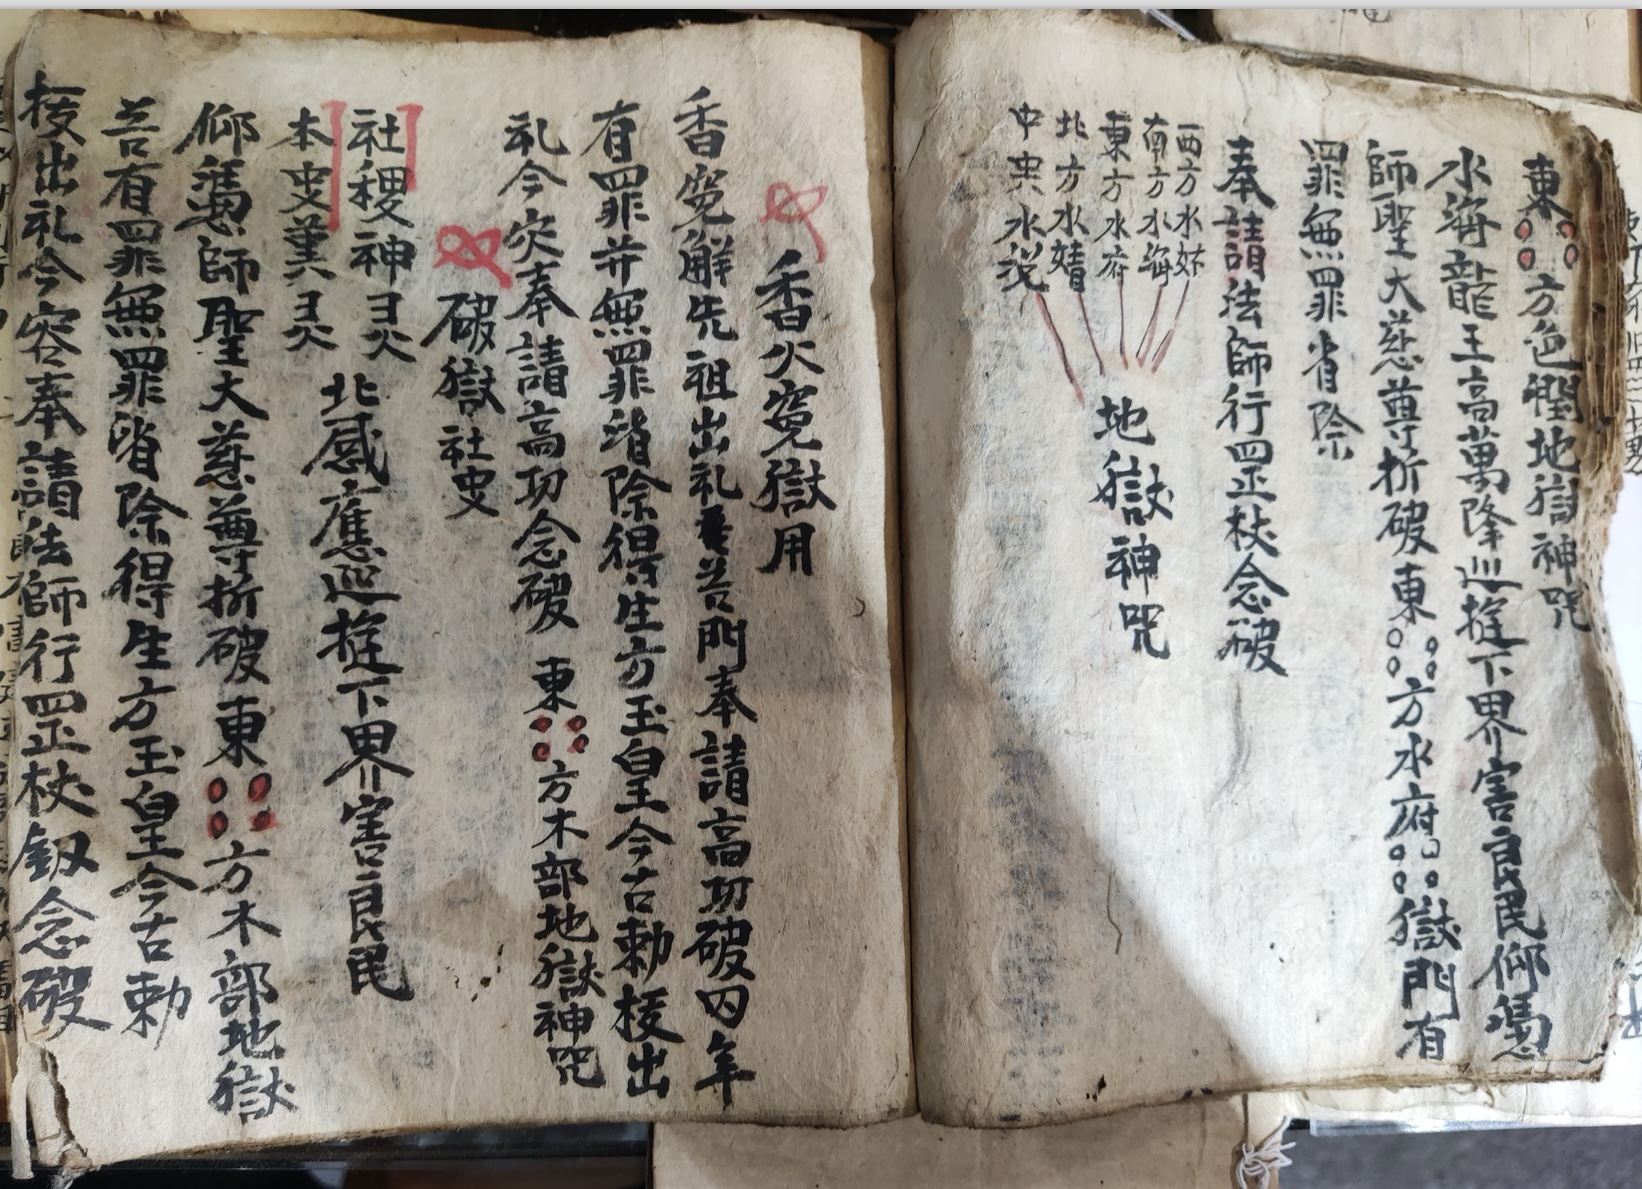 東方色𤄃地獄神咒
水海龍王高萬降巡𢰸下界害良民仰憑
師聖大慈尊折破東方水府獄門有
罪無罪省除
奉請法師行罡正杖念破
西方水
南方水海
東方水府
北方水
中央水
地獄神咒
香火冤獄用
香冤解先祖出礼苦門奉請高功破囚年
有罪并無罪消除得生方玉皇今古勅拔出
礼今容奉請高功念破東方木部地獄神咒
破獄社史
社稷神灵
本史灵
北感應巡下界害良民
仰憑師聖大慈尊折破東方木部地獄
若有罪無罪消除得生方玉皇今古勅
拔出礼今容奉請法師行罡正杖釼念破